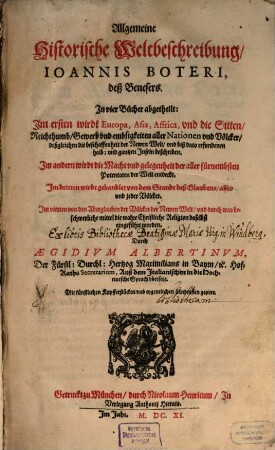 Allgemeine
Historische Weltbeschreibung/
IOANNIS BOTERI,
deß Benesers.
In vier Bücher abgetheilt:
Im ersten wirdt Europa, Asia, Affrica, vnd die Sitten/
Reichthumb/ Gewerb vnd embsigkeiten aller Nationen vnd Völcker/
deßgleichen die beschaffenheit der Newen Welt/ vnd biß dato erfundenen
halb: vnd gantzen Inseln beschriben.
Im andern wirdt die Macht vnd gelegenheit der aller fürnembsten
Potentaten der Welt entdeckt.
Im dritten wirdt gehandlet von dem Standt deß Glaubens/ aller
vnd jeder Völcker.
Im vierten von den Aberglauben der Völcker der Newen Welt/ vnd durch was be-
schwerliche mittel die wahre Christliche Religion daselbst
eingeführt worden.
Ex libris Bibliothecæ Beatissimæ Mariæ Virg: in Windberg.
Durch
ÆGIDIVM ALBERTINVM,
Der Fürstl: Durchl: Hertzog Maximilians in Bayrn/ &c. Hof-
Raths Secretarium, Auß dem Italianischen in die Hoch-
teutsche Sprach vbersetzt.
Mit künstlichen Kupfferstücken vnd
Getruckt zu München/ durch Nicolaum Henricum/ In
Verlegung Anthonij Hierats.
Im Jahr. M. DC. XI.
Bayerische
Staatsbibliothek
München